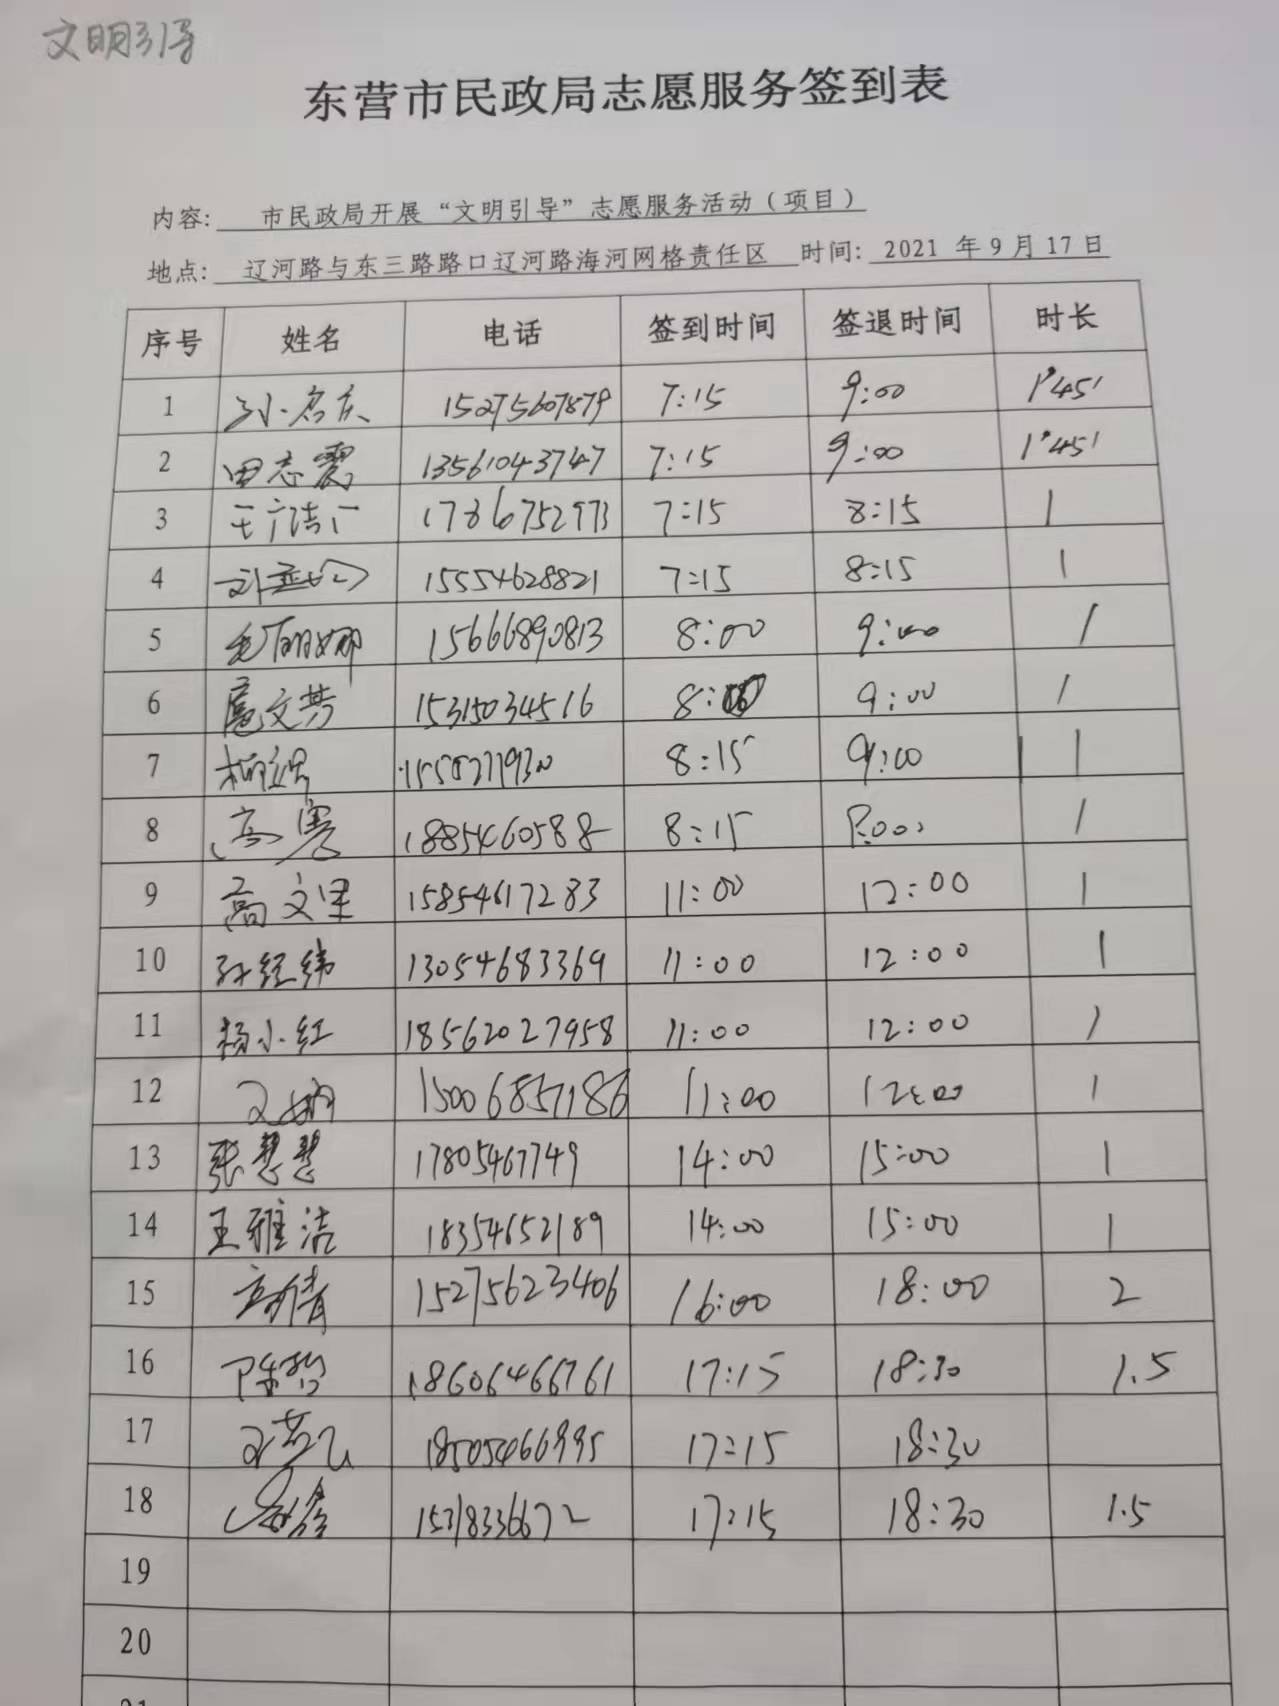 文明引导
东营市民政局志愿服务签到表
内容: 市民政局开展“文明引导”志愿服务活动（项目）
地点: 辽河路与东三路路口辽河路海河网格责任区 时间: 2021 年 9 月 17 日
序号 姓名 电话 签到时间 签退时间 时长
1 15275607879 7:15 9:00 1°45′
2 田志震 13561043747 7:15 9:00 1°45′
3 17866752973 7:15 8:15 1
4 15554628821 7:15 8:15 1
5 毛丽娜 15666890813 8:00 9:00 1
6 扈文芳 15315034516 8:00 9:00 1
7 8:15 9:00 1
8 高寒 8:15 1
9 高文里 15854617283 11:00 12:00 1
10 孙经纬 13054683369 11:00 12:00 1
11 杨小红 18562027958 11:00 12:00 1
12 15006857186 11:00 12:00 1
13 张慧慧 17805467749 14:00 15:00 1
14 王雅洁 18354652189 14:00 15:00 1
15 高倩 15275623406 16:00 18:00 2
16 陈哲 18606466761 17:15 18:30 1.5
17 18505466995 17:15 18:30
18 15318336672 17:15 18:30 1.5
19
20